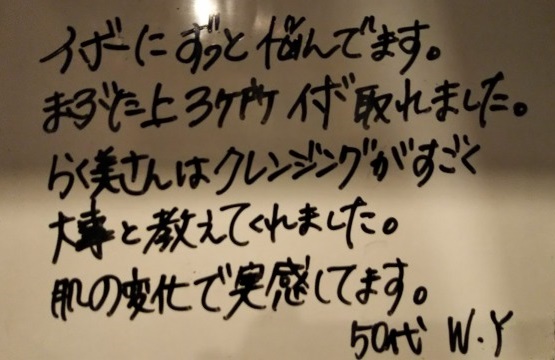 イボーにずっと悩んでます。
まぶた上3ケ所イボ取れました。
らく美さんはクレンジングがすごく
大事と教えてくれました。
肌の変化で実感してます。
50代 W.Y